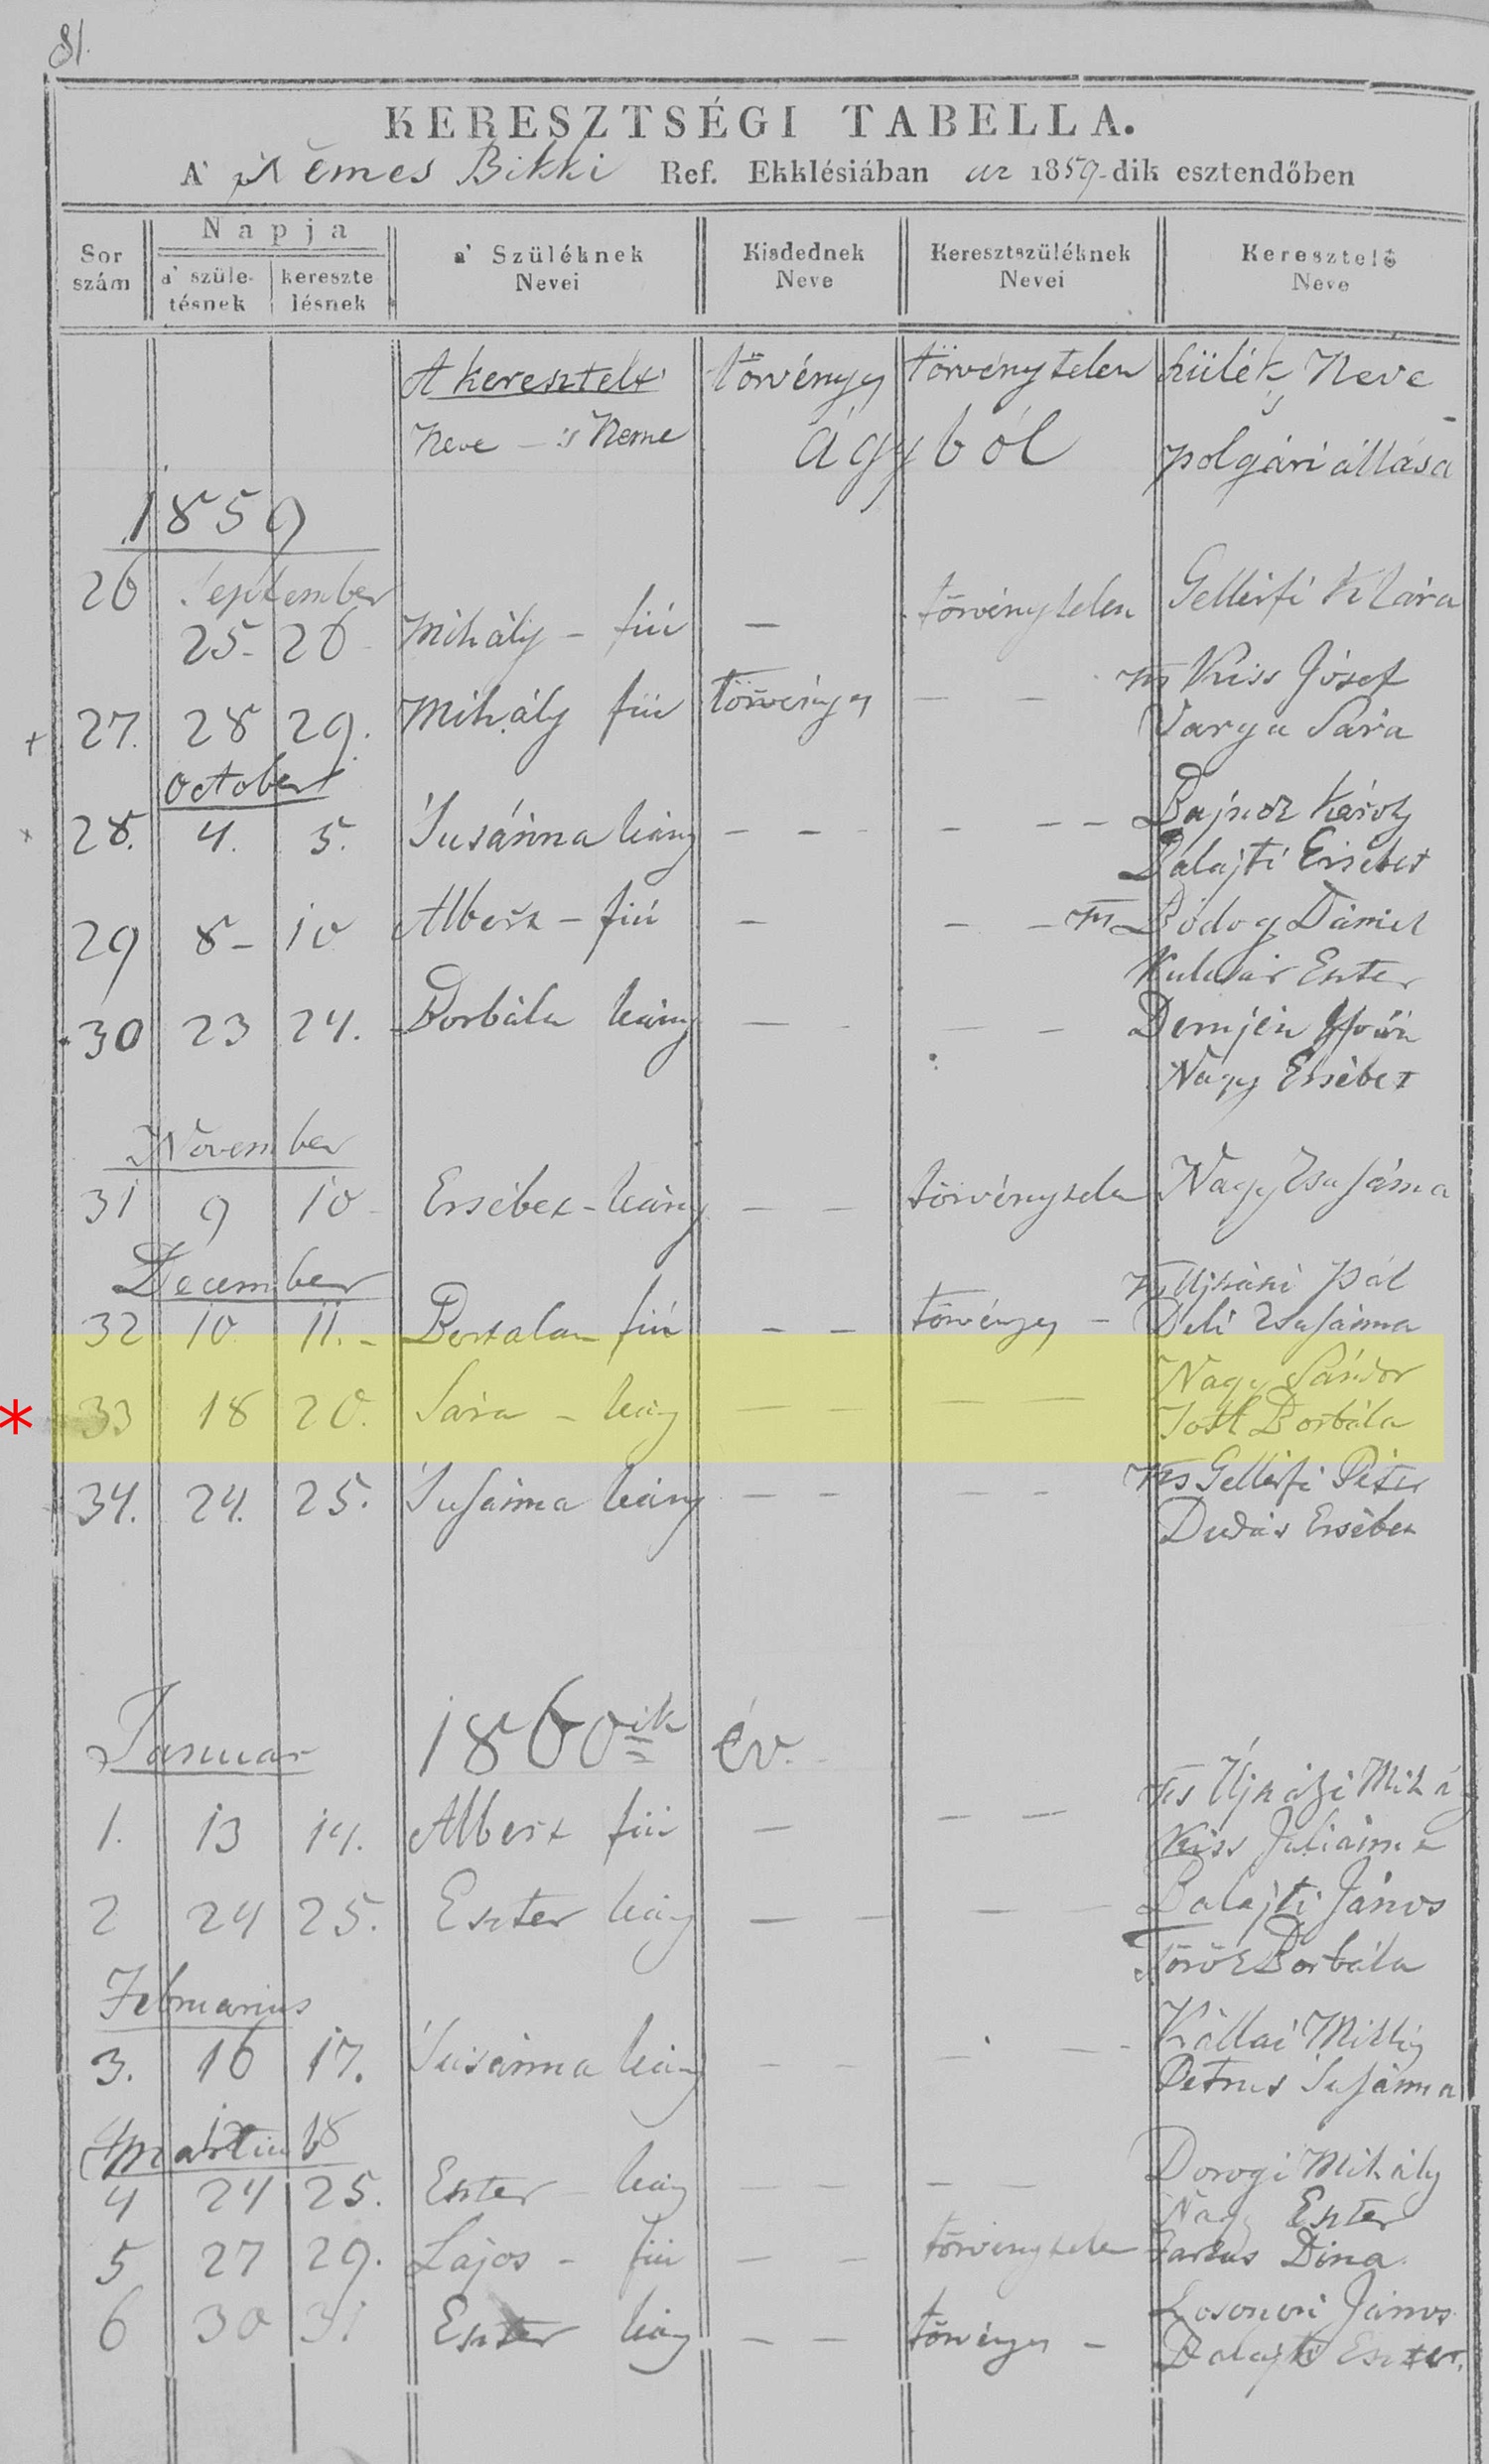 81.
KERESZTSÉGI TABELLA.
A' Nemes Bikki Ref. Ekklésiában az 1859-dik esztendőben
Sor szám
Napja
a' születésnek
keresztelésnek
a' Szüléknek Nevei
Kisdednek Neve
Keresztszüléknek Nevei
Keresztelő Neve
A keresztelt törvényes törvénytelen szülék Neve
Neve - 's Neme ágyból polgári állása
1859
26 September Gellérfi Klára
25 - 26 - Mihály - fiú — törvénytelen
Kiss Jósef
+ 27. 28 29. Mihály fiú törvényes — — Varga Sára
October
Bajusz Károly
+ 28. 4. 5. Susánna leány — — — — — Balajti Ersébet
29 8 - 10 Albert - fiú — — — Bodog Dániel
Eszter
30 23 24. Borbála leány — - — — Demjén
Nagy Ersébet
November
31 9 10 - Ersébet - leány — — törvénytelen Nagy Zsusánna
December
Pál
32 10. 11. - Bertalan fiú — — törvényes - Deli Zsusánna
Nagy Sándor
* 33 18 20. Sára - leány — — — — Tóth Borbála
Gellérfi Péter
34. 24. 25. Susánna leány — — — — Dudás Ersébet
Januar 1860ik év.
Mihály
1. 13 14. Albert fiú — — — Kiss Juliánna
2 24 25. Eszter leány — — — — Balajti János
Török Borbála
Februarius
Kállai Mihály
3. 16 17. Susánna leány — — — — Petrus Susánna
Martius
Dorogi Mihály
4 24 25. Eszter leány — — — — Nagy Eszter
5 27 29. Lajos - fiú — — törvénytelen Farkas Dina.
6 30 31 Eszter leány — — törvényes - Losonczi János
Balajti Eszter.